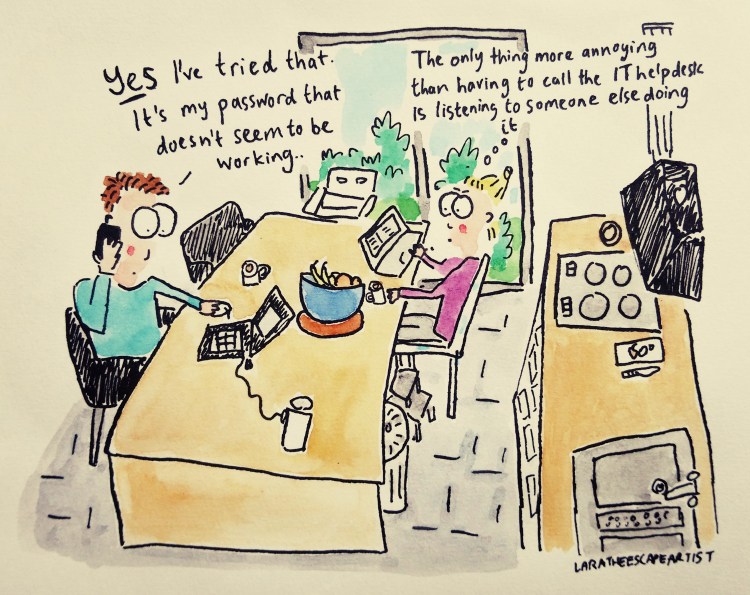 Yes I've tried that.
It's my password that
doesn't seem to be
working..
The only thing more annoying
than having to call the IT helpdesk
Is listening to someone else doing
it
LARATHEESCAPEARTIST